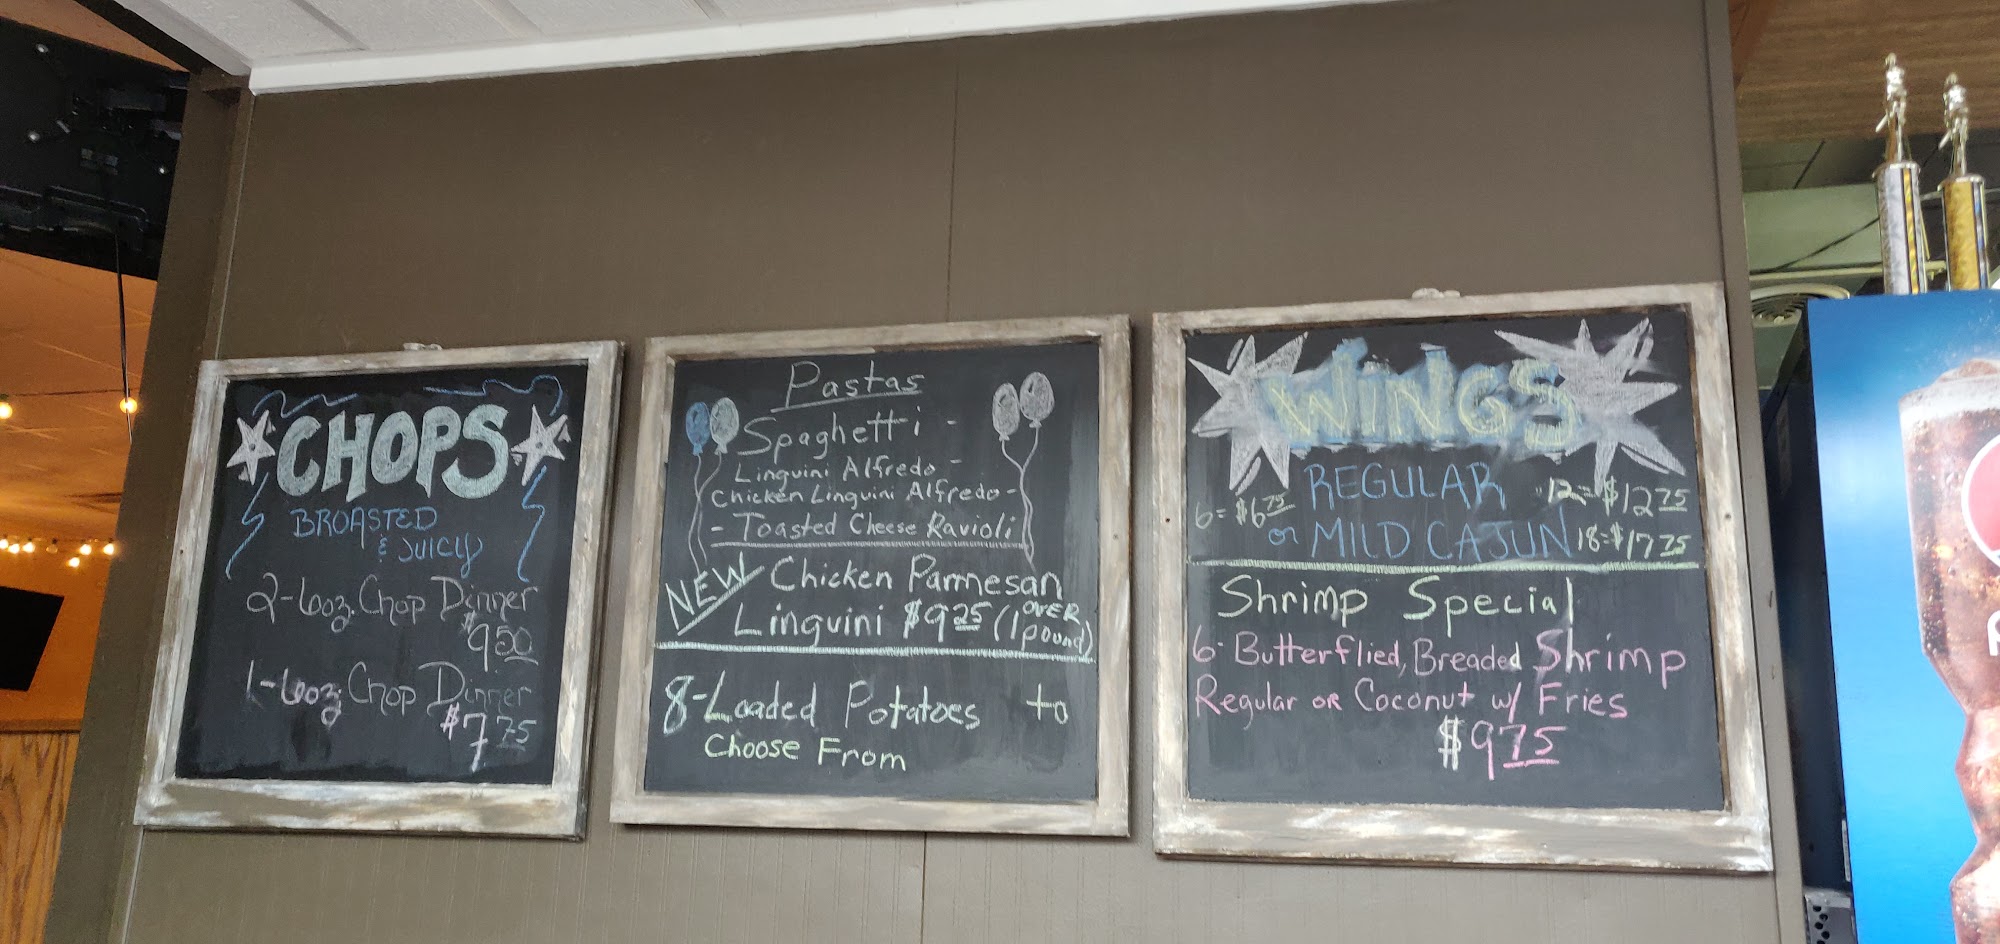 CHOPS
BROASTED
& JUICY
2-6oz. Chop Dinner
$9.50
1-6oz. Chop Dinner
$7.75
Pastas
Spaghetti -
Linguini Alfredo -
Chicken Linguini Alfredo -
- Toasted Cheese Ravioli
NEW Chicken Parmesan
Linguini $9.25 (OVER 1 pound)
8-Loaded Potatoes to
Choose From
WINGS
REGULAR
6=$6.75 12=$12.75
or MILD CAJUN 18=$17.75
Shrimp Special
6- Butterflied, Breaded Shrimp
Regular OR Coconut w/ Fries
$9.75